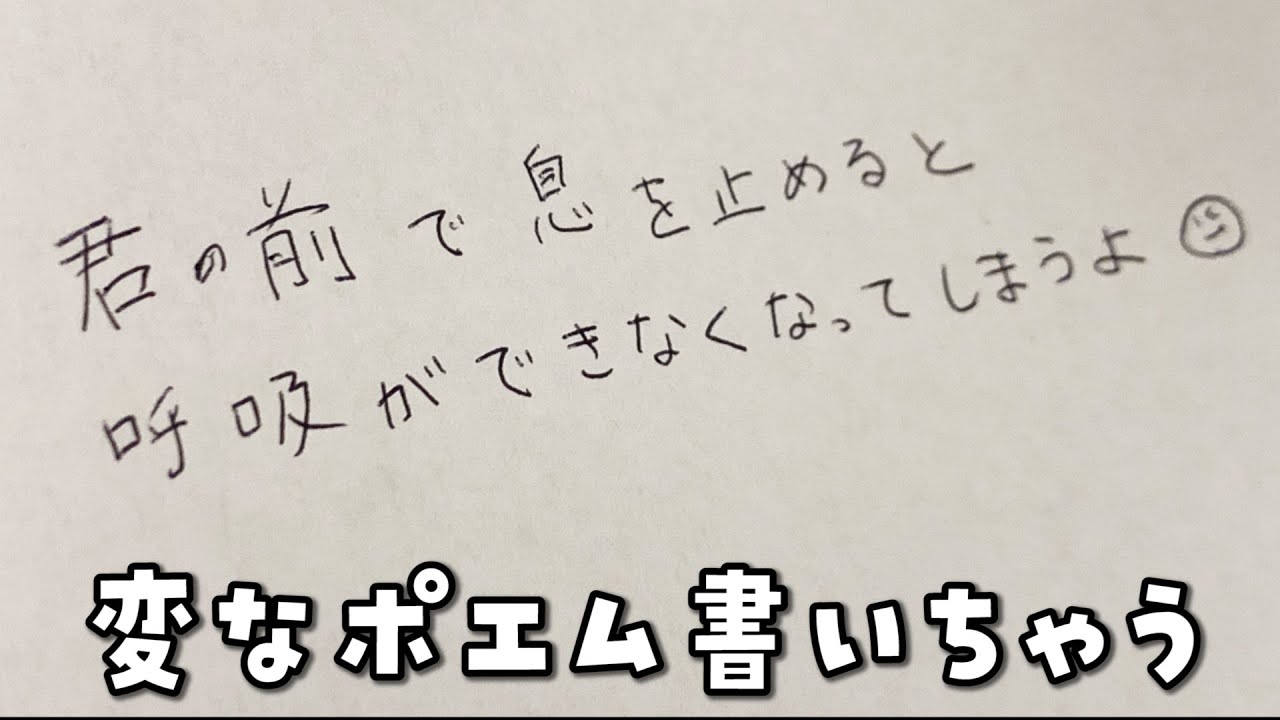 君の前で息を止めると
呼吸ができなくなってしまうよ
変なポエム書いちゃう